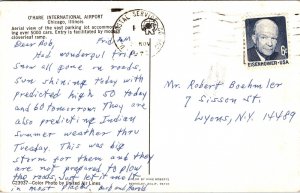 O'HARE INTERNATIONAL AIRPORT
Chicago, Illinois
Aerial view of the vast parking lot accommodating over 5000 cars. Entry is facilitated by modern cloverleaf ramp.
Dear Bob,
Had wonderful trip
saw all gone in roads,
sun shining today with
predicted high 50 today
and 60 tomorrow. They are
also predicting Indian
Summer weather thru
Tuesday. This was big
storm for them and they
are not prepared to plow
the roads, just let it alone
is most places
C23937 - Color Photo by United Air Lines
POSTAL SERVICE
NOV
6c
EISENHOWER·USA
Mr. Robert Boehmler
7 Sisson St.
Lyons, N.Y. 14489